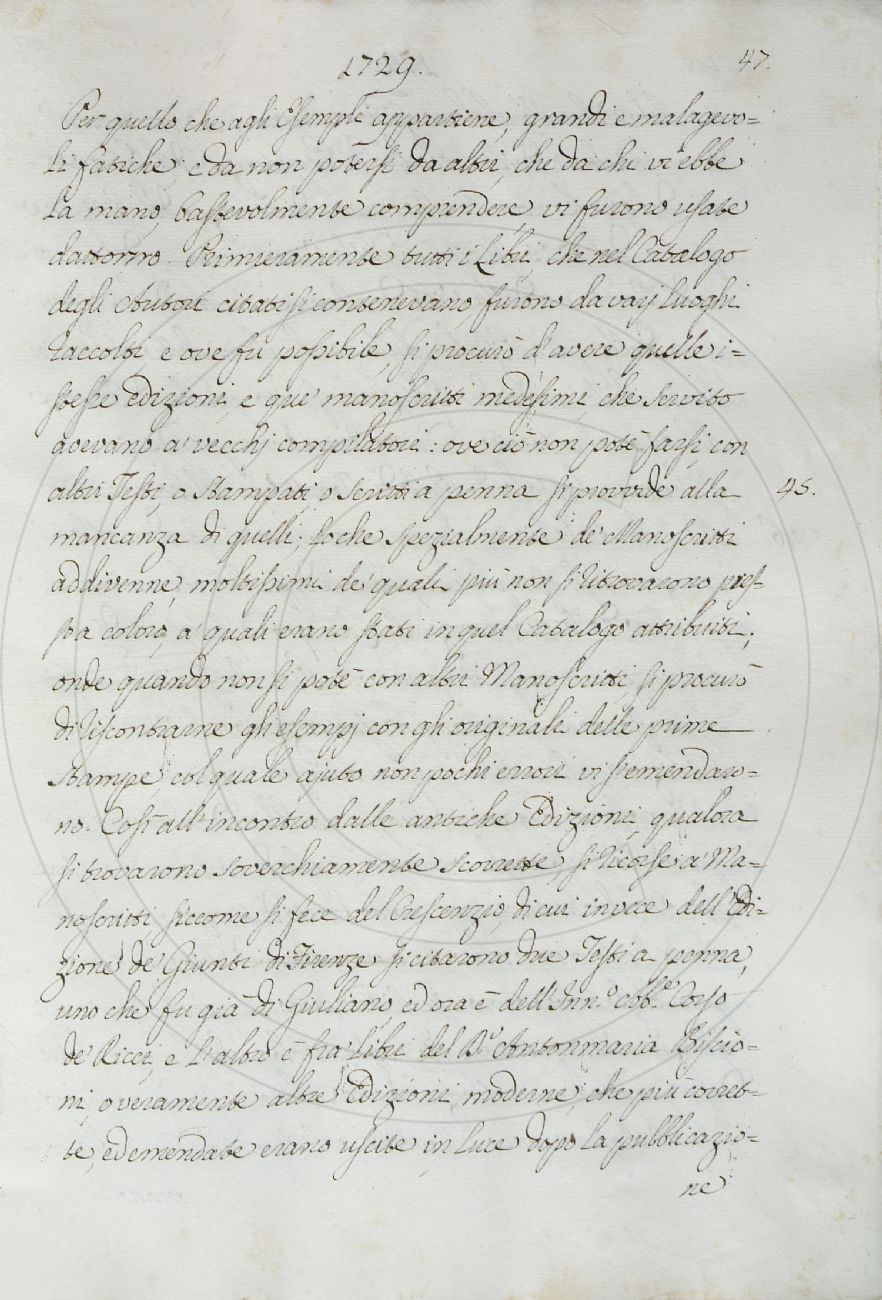 1729.
47.
Per quello che agli Esempli appartiene, grandi e malagevo=
li fatiche, e da non potersi da altri, che da chi vi ebbe
la mano, bastevolmente comprendere, vi furono usate
dattorno. Primieramente tutti i Libri, che nel Catalogo
degli Autori citati si contenevano, furono da varj luoghi
raccolti, e ove fu possibile, si procurò d'avere quelle i=
stesse edizioni, e que' manoscritti medesimi che servito
avevano a' vecchj compilatori: ove ciò non potè farsi, con
altri Testi, o stampati, o scritti a penna si provvide alla
45.
mancanza di quelli; lo che spezialmente de' Manoscritti
addivenne, moltissimi de' quali più non si ritrovarono pres=
so a coloro, a' quali erano stati in quel Catalogo attribuiti;
onde quando non si potè con altri Manoscritti si procurò
di riscontrarne gli esempj con gli originali delle prime
stampe, col quale ajuto non pochi errori vi s'emendaro=
no. Così all'incontro dalle antiche Edizioni, qualora
si trovarono soverchiamente scorrette, si ricorse a' Ma=
noscritti siccome si fece del Crescenzio, di cui invece dell'Edi=
zione de' Giunti di Firenze si citarono due Testi a penna,
uno che fu già di Giulliano, ed ora è dell'Inn.º Corso
de' Ricci, e l'altro è fra' Libri del D.r Antonmaria Biscio=
ni, o veramente altre Edizioni moderne, che più corret=
te, ed emendate erano uscite in luce dopo la pubblicazio=
ne